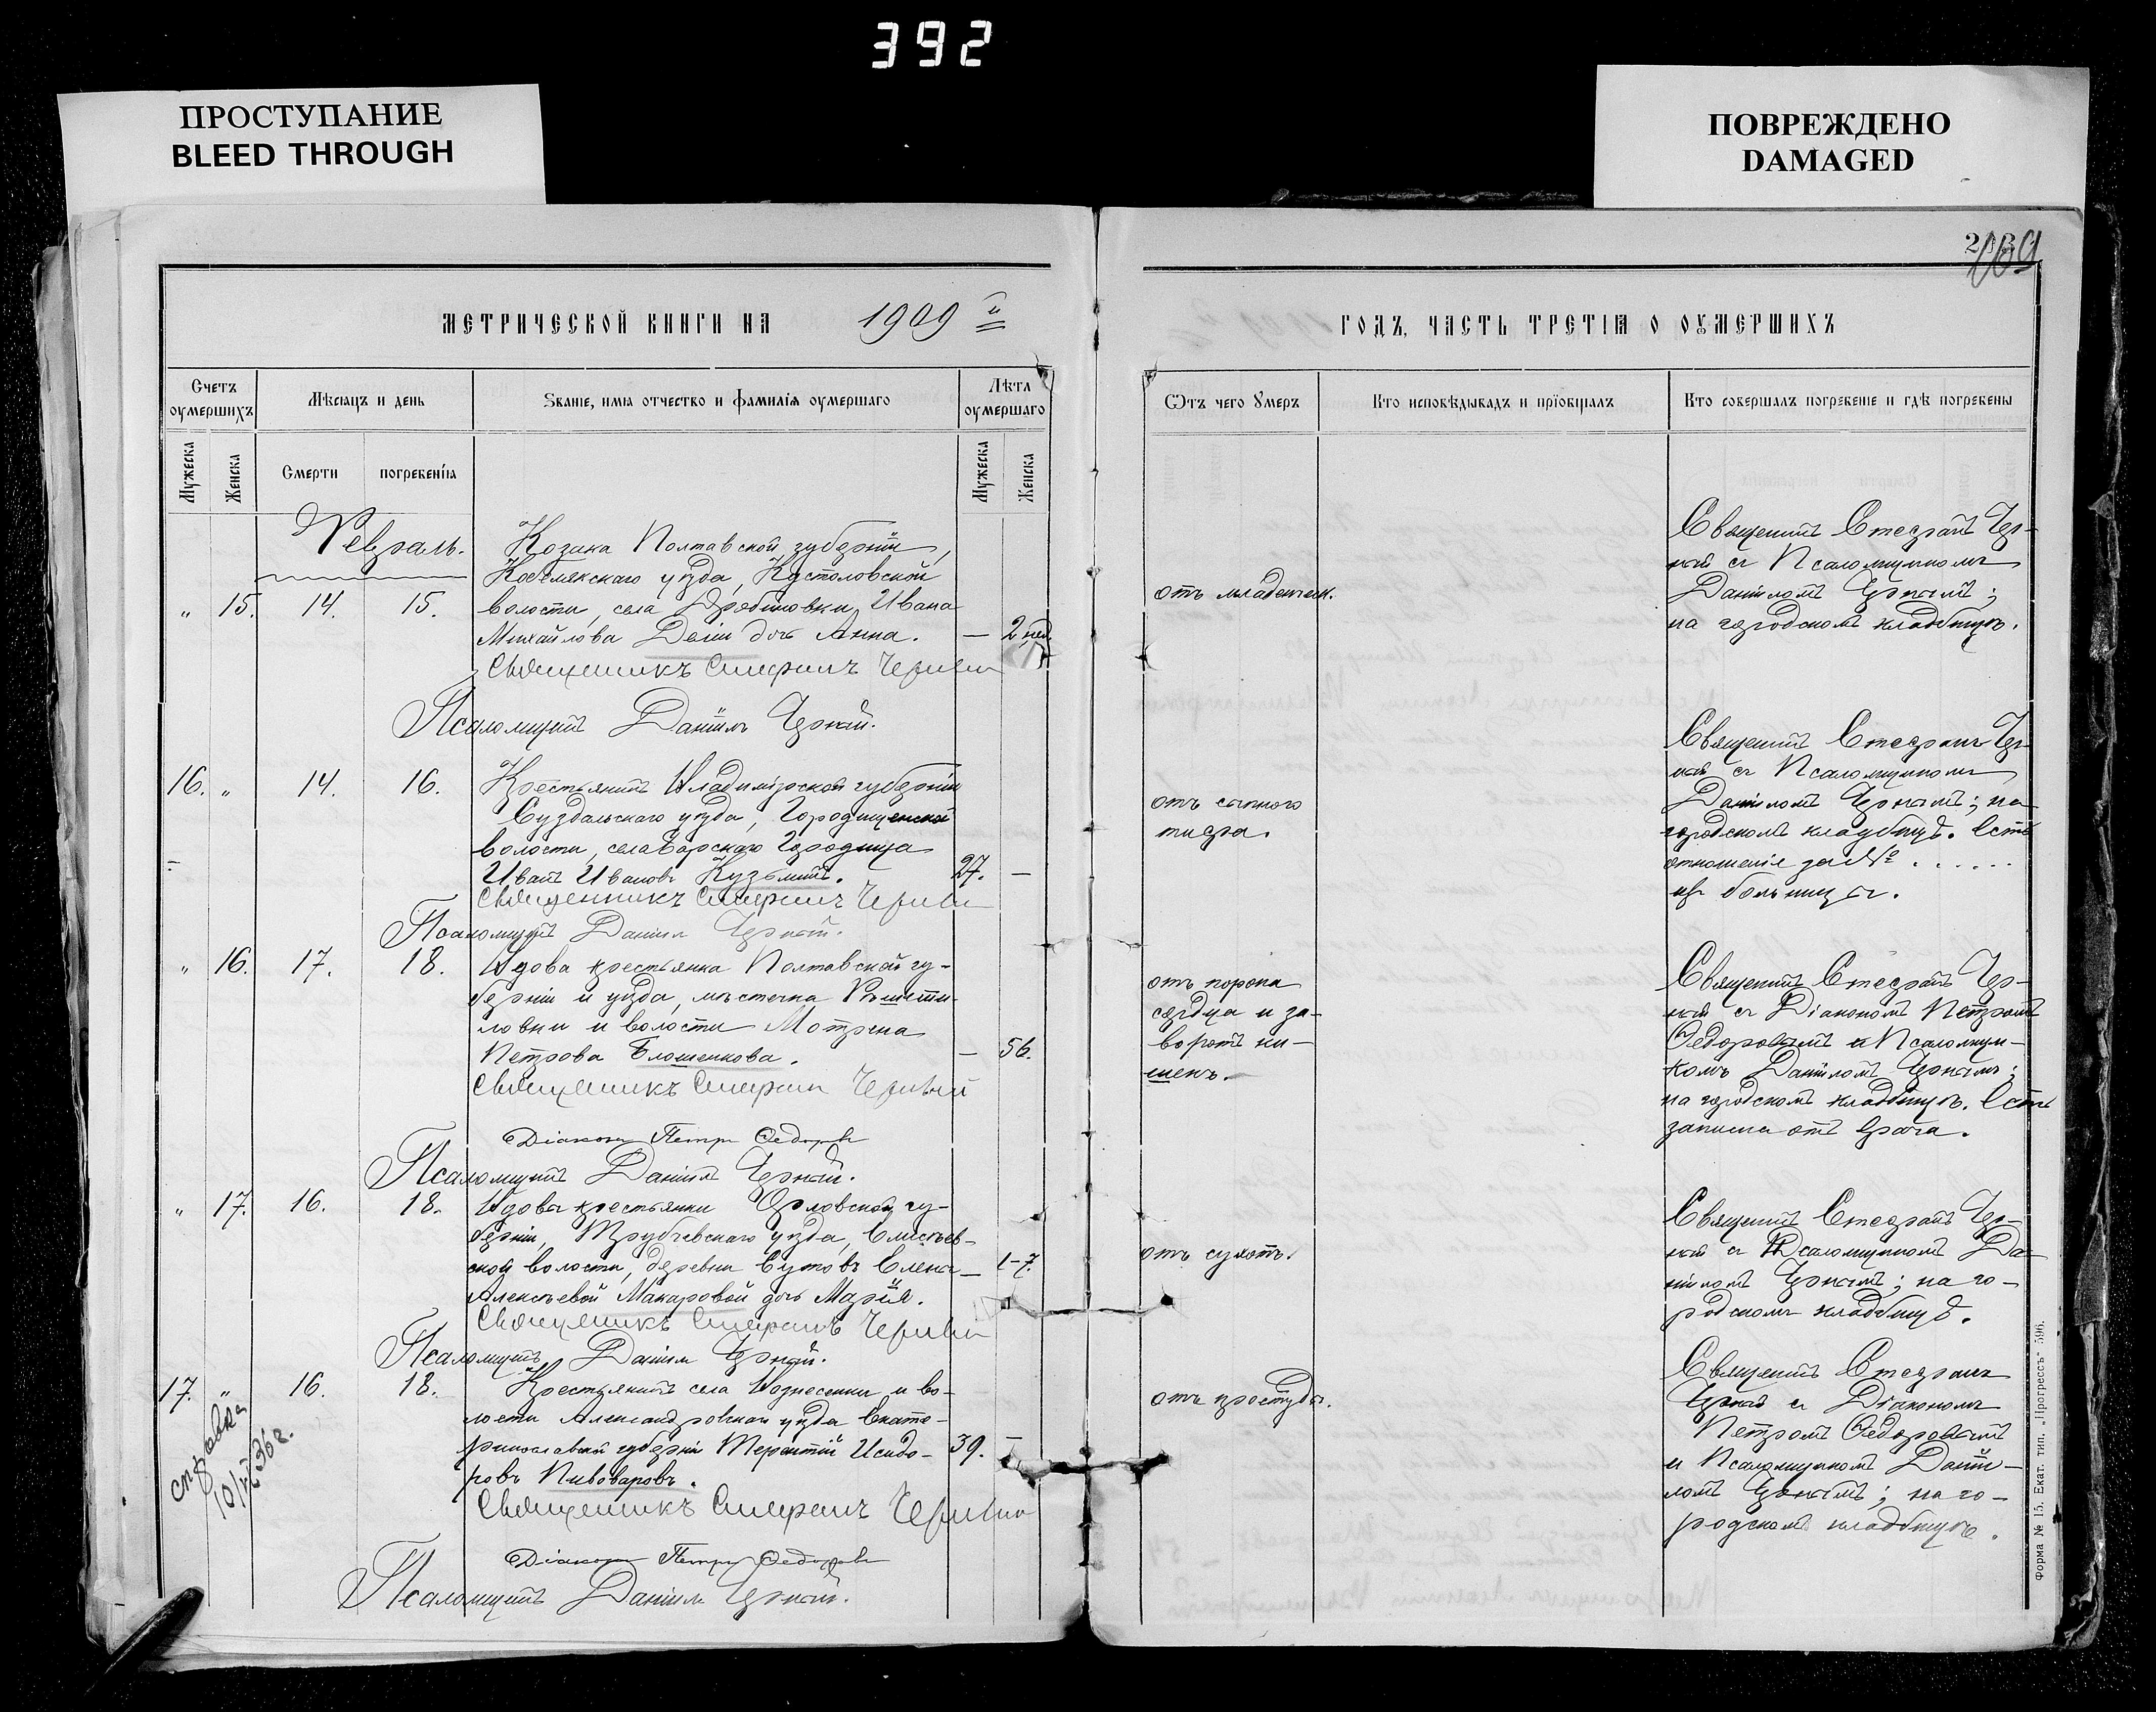 392
ПРОСТУПАНИЕ
BLEED THROUGH
ПОВРЕЖДЕНО
DAMAGED
169
МЕТРИЧЕСКОЙ КНИГИ НА 1909 й
ГОДЪ, ЧАСТЬ ТРЕТІѦ О ОУМЕРШИХЪ
Счетъ оумершихъ
Мѣсяцъ и день
Званіе, имѧ отчество и фамиліѧ оумершаго
Лѣта оумершаго
Мужеска
Женска
Смерти
погребеніѧ
Мужеска
Женска
Ѿтъ чего Умеръ
Кто исповѣдывалъ и прїобщалъ
Кто совершалъ погребеніе и гдѣ погребены
Февраль.
„ 15. 14. 15.
Козака Полтавской губерніи,
Кобелякскаго уѣзда, Кустоловской
волости, села Дробиновки, Ивана
Михайлова Деіи дочь Анна. — 2 нед.
Священникъ Стефанъ Черный
Псаломщикъ Даніилъ Черный.
отъ младенч.
Священникъ Стефанъ Чер-
ный съ Псаломщикомъ
Даніиломъ Чернымъ;
на городскомъ кладбищѣ.
16. „ 14. 16.
Крестьянинъ Владимірской губерніи
Суздальскаго уѣзда, Городищенской
волости, села Барскаго Городища
Иванъ Ивановъ Кузьминъ. 27. —
Священникъ Стефанъ Черный
Псаломщикъ Даніилъ Черный.
отъ сыпного
тифа.
Священникъ Стефанъ Чер-
ный съ Псаломщикомъ
Даніиломъ Чернымъ; на
городскомъ кладбищѣ. Есть
отношеніе за № . . . . . .
изъ больницы.
„ 16. 17. 18.
Вдова крестьянка Полтавской гу-
берніи и уѣзда, мѣстечка Рѣшети-
ловки и волости Мотрона
Петрова Блошенкова. — 56.
Священникъ Стефанъ Черный
Діаконъ Петръ Федоровъ
Псаломщикъ Даніилъ Черный.
отъ порока
сердца и за-
воротъ ки-
шекъ.
Священникъ Стефанъ Чер-
ный съ Діакономъ Петромъ
Федоровымъ и Псаломщи-
комъ Даніиломъ Чернымъ;
на городскомъ кладбищѣ. Есть
записка отъ врача.
„ 17. 16. 18.
Вдовы крестьянки Орловской гу-
берніи, Трубчевскаго уѣзда,
ской волости, деревни Елены — 1-7.
Алексѣевой Макаровой дочь Марія.
Священникъ Стефанъ Черный
Псаломщикъ Даніилъ Черный.
отъ сухотъ.
Священникъ Стефанъ Чер-
ный съ Псаломщикомъ Да-
ніиломъ Чернымъ; на го-
родскомъ кладбищѣ.
17. „ 16. 18.
Крестьянинъ села Вознесенки и во-
лости Александровскаго уѣзда Екате-
ринославской губерніи Терентій Исидо- 39. —
ровъ Пивоваровъ.
Священникъ Стефанъ Черный
Діаконъ Петръ Федоровъ
Псаломщикъ Даніилъ Черный.
справка
36 г.
отъ простуды.
Священникъ Стефанъ
Черный съ Діакономъ
Петромъ Федоровымъ
и Псаломщикомъ Даніи-
ломъ Чернымъ; на го-
родскомъ кладбищѣ.
Форма № 15. Екат. тип. „Прогрессъ“ 596.